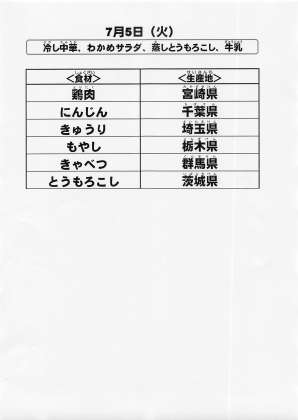 7月5日（火）
冷し中華、わかめサラダ、蒸しとうもろこし、牛乳
＜食材＞ ＜生産地＞
鶏肉 宮崎県
にんじん 千葉県
きゅうり 埼玉県
もやし 栃木県
きゃべつ 群馬県
とうもろこし 茨城県